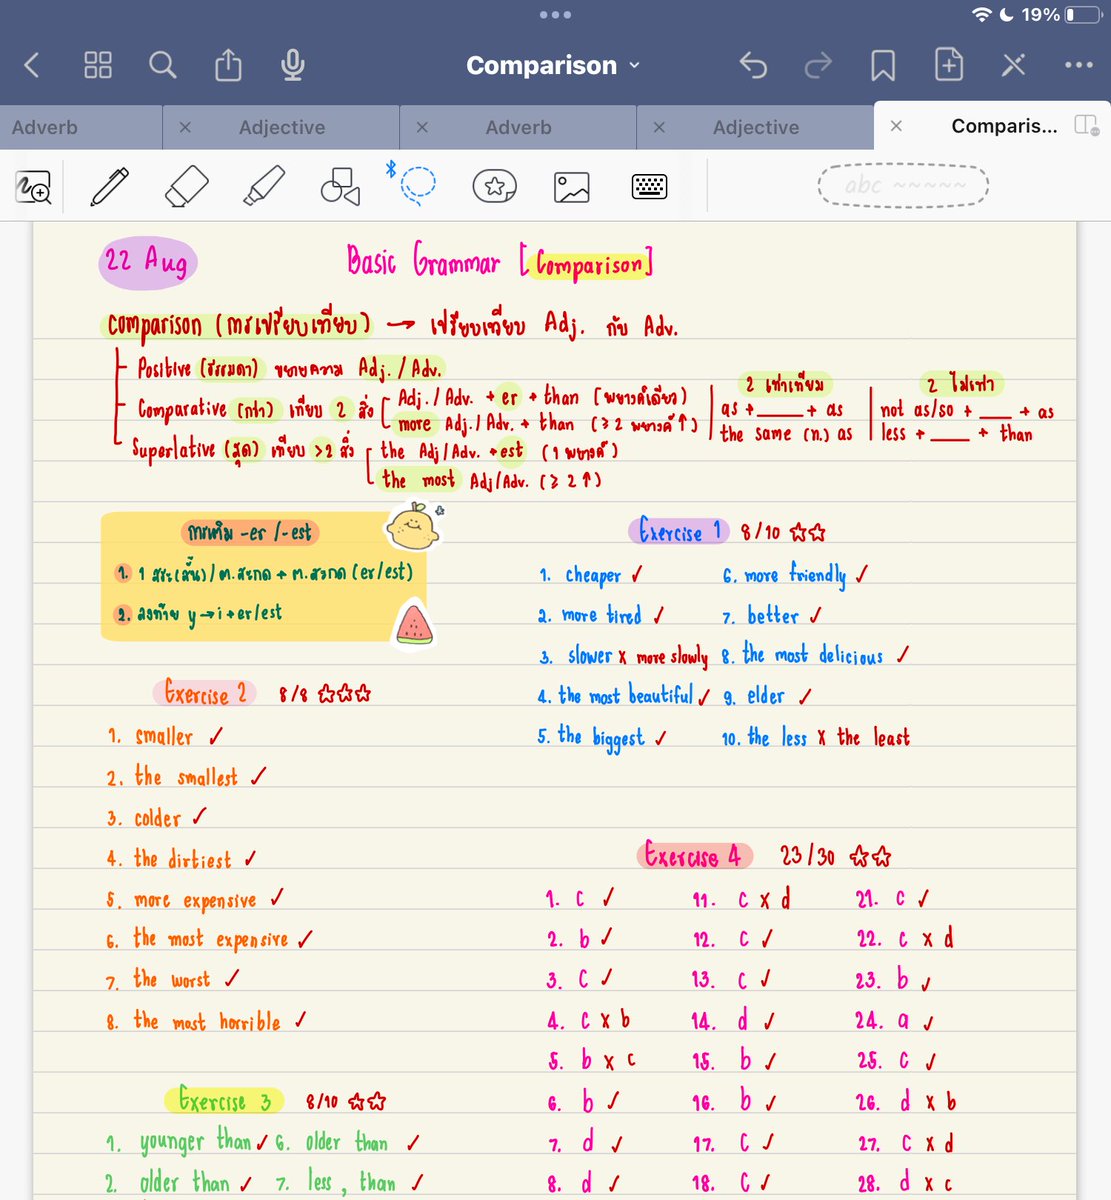 19%
Comparison
Adverb
× Adjective
× Adverb
× Adjective
× Comparis...
abc
22 Aug
Basic Grammar [Comparison]
Comparison (การเปรียบเทียบ) → เปรียบเทียบ Adj. กับ Adv.
Positive (ธรรมดา) ขยายความ Adj. / Adv.
Comparative (กว่า) เทียบ 2 สิ่ง
Adj. / Adv. + er + than (พยางค์เดียว)
more Adj. / Adv. + than (≥ 2 พยางค์ ↑)
2 เท่าเทียม
as + ____ + as
the same (n.) as
2 ไม่เท่า
not as/so + ____ + as
less + ____ + than
Superlative (สุด) เทียบ >2 สิ่ง
the Adj/Adv. +est (1 พยางค์)
the most Adj/Adv. (≥ 2 ↑)
การเติม -er /-est
1. 1 สระ(สั้น) / ต.สะกด + ต.สะกด (er/est)
2. ลงท้าย y → i + er/est
Exercise 1 8/10 ☆☆
1. cheaper ✓
2. more tired ✓
3. slower x more slowly
4. the most beautiful ✓
5. the biggest ✓
6. more friendly ✓
7. better ✓
8. the most delicious ✓
9. elder ✓
10. the less x the least
Exercise 2 8/8 ☆☆☆
1. smaller ✓
2. the smallest ✓
3. colder ✓
4. the dirtiest ✓
5. more expensive ✓
6. the most expensive ✓
7. the worst ✓
8. the most horrible ✓
Exercise 3 8/10 ☆☆
1. younger than ✓ 6. older than ✓
2. older than ✓ 7. less , than ✓
Exercise 4 23/30 ☆☆
1. c ✓
2. b ✓
3. c ✓
4. c x b
5. b x c
6. b ✓
7. d ✓
8. d ✓
11. c x d
12. c ✓
13. c ✓
14. d ✓
15. b ✓
16. b ✓
17. c ✓
18. c ✓
21. c ✓
22. c x d
23. b ✓
24. a ✓
25. c ✓
26. d x b
27. c x d
28. d x c